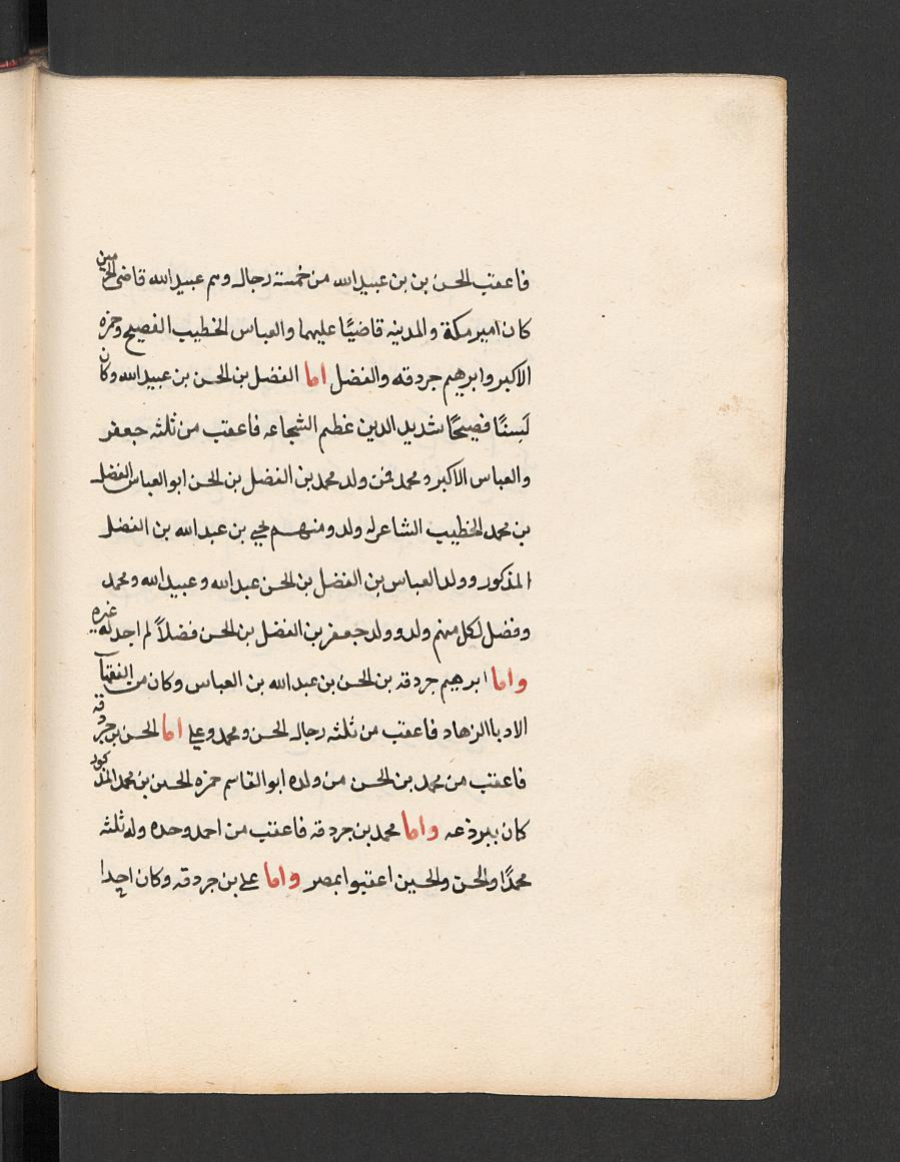 فاعقب الحسن بن بن عبيدالله من خمسة رجال وهم عبيدالله قاضى الحرمين
كان امير مكة والمدينه قاضيًا عليهما والعباس الخطيب الفصيح وحمزه
الاكبر وابرهيم جردقه والفضل اما الفضل بن الحسن بن عبيدالله وكان
لَسِنًا فصيحًا شديد الدين عظم الشجاعه فاعقب من ثلثه جعفر
والعباس الاكبر ومحمد فمن ولد محمد بن الفضل بن الحسن ابو العباس الفضل
بن محمد الخطيب الشاعر له ولد ومنهم يحيي بن عبدالله بن الفضل
المذكور وولد العباس بن الفضل بن الحسن عبدالله وعبيدالله ومحمد
وفضل لكل منهم ولد وولد جعفر بن الفضل بن الحسن فضلاً لم اجد له غيره
واما ابرهيم جردقه بن الحسن بن عبدالله بن العباس وكان من الفقها
الادبا الزهاد فاعقب من ثلثه رجال الحسن ومحمد وعلي اما الحسن بن جردقه
فاعقب من محمد بن الحسن من ولده ابو القاسم حمزه الحسين بن محمد المذكور
كان ببرذعه واما محمد بن جردقه فاعقب من احمد وحده وله ثلثه
محمدًا والحسن والحسين اعقبوا بمصر واما علي بن جردقه وكان احدا